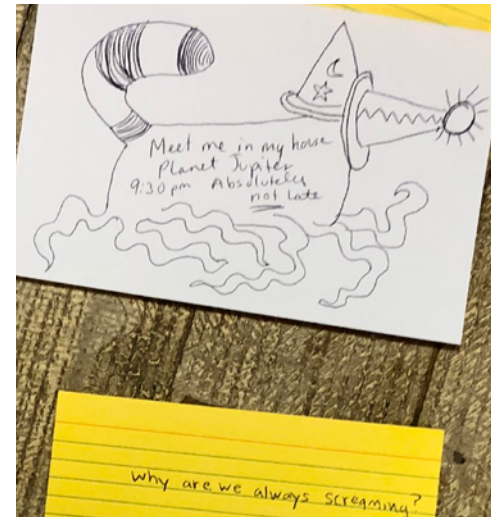 Meet me in my house
Planet Jupiter
9:30 pm Absolutely
not Late
why are we always screaming?